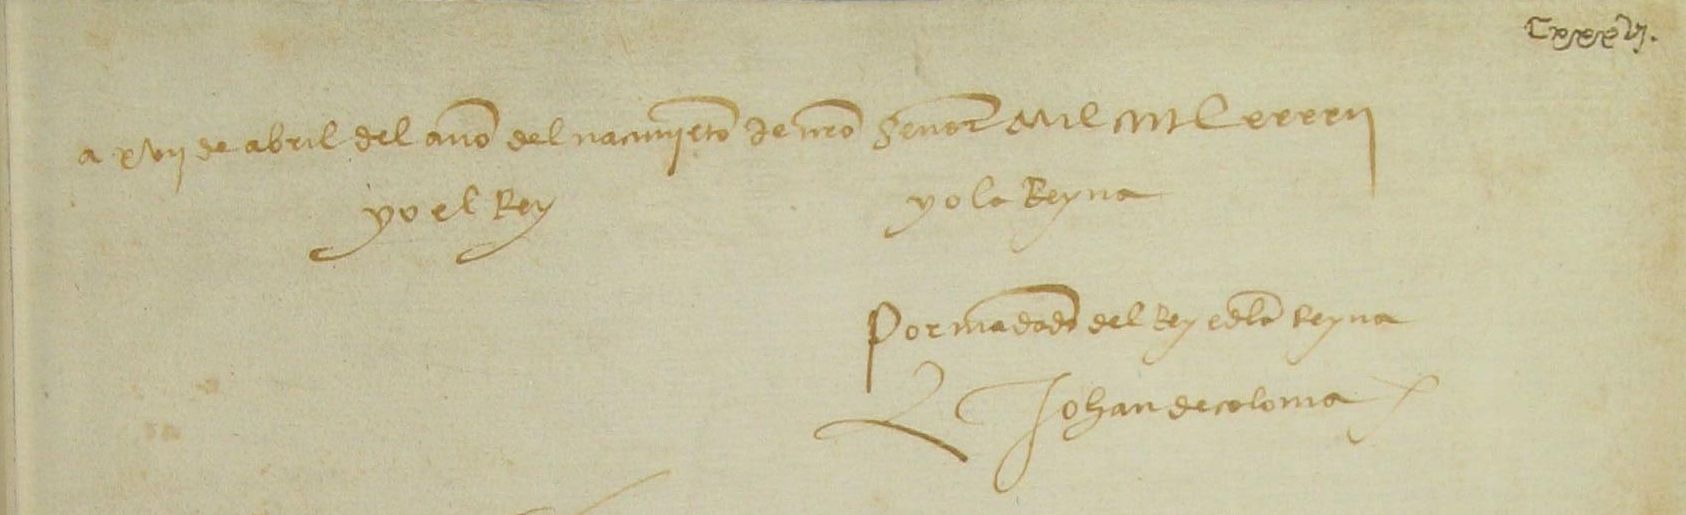 Cxxxvj.
a xvij de abril del año del nacimyēto de nrō Señor Mil cccc Lxxxxij
yo el Rey
yo la Reyna
Por mādado del Rey e dla Reyna
Johan de coloma